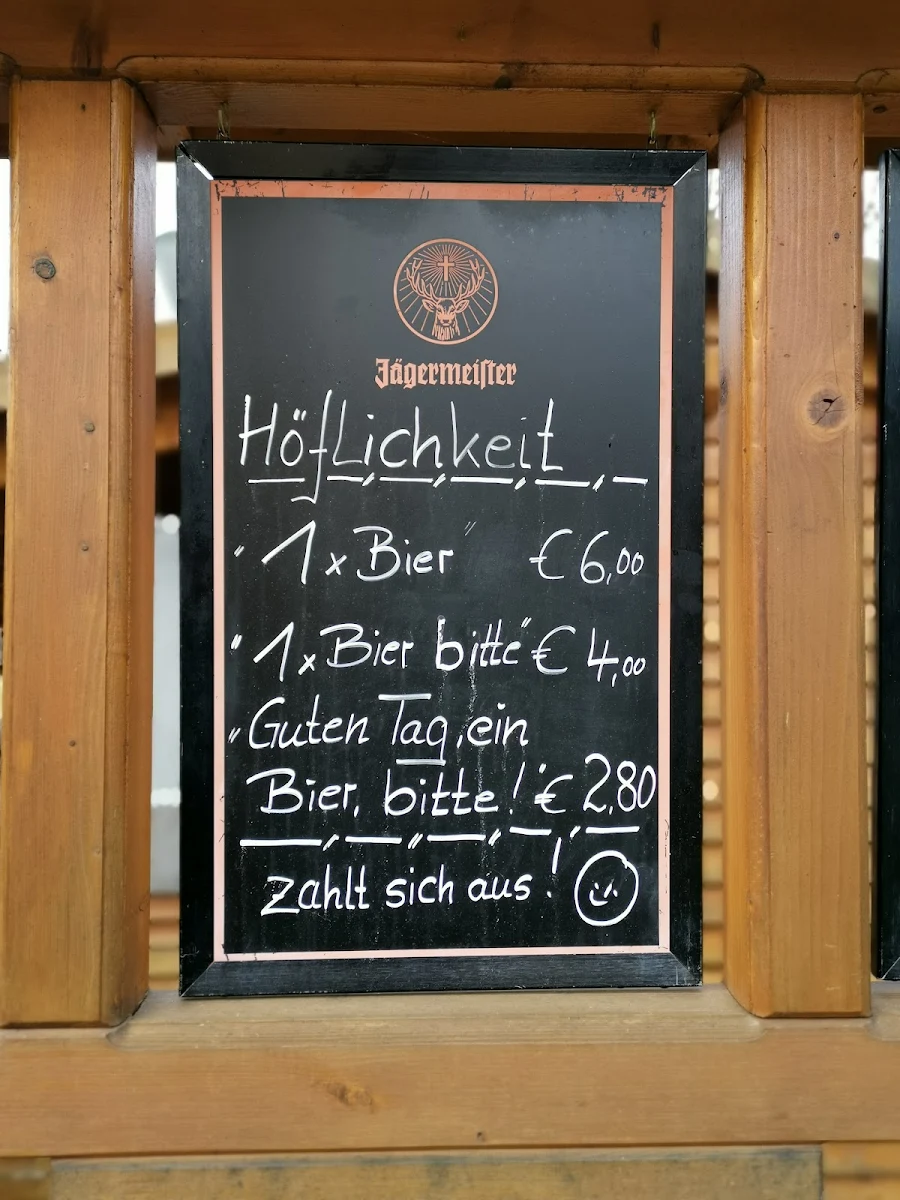 Jägermeister
Höflichkeit
"1 x Bier" € 6,00
"1 x Bier bitte" € 4,00
"Guten Tag, ein
Bier, bitte!" € 2,80
zahlt sich aus!